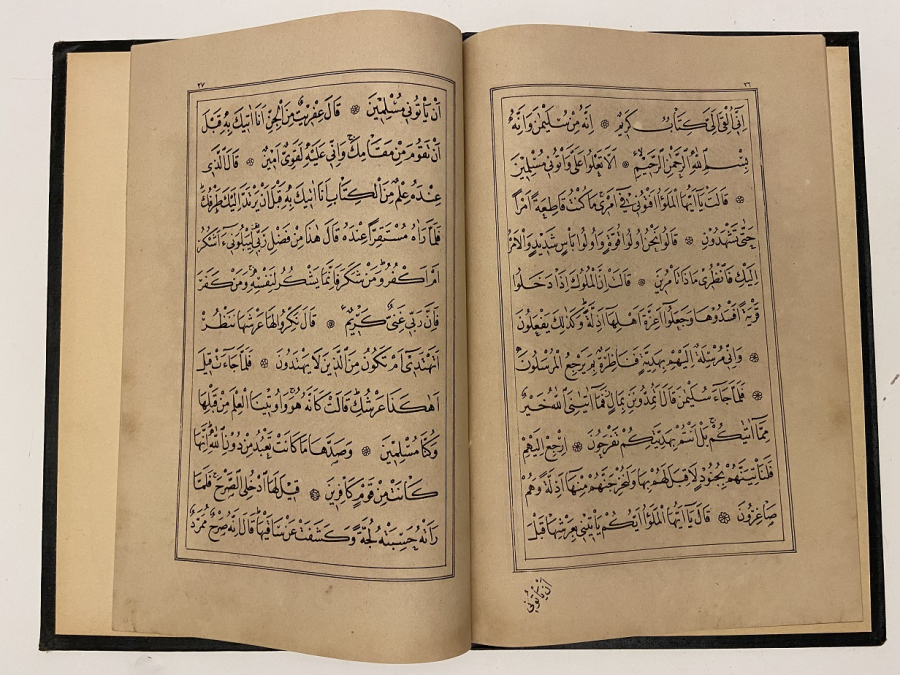 ٢٦
اِنّٖى اُلْقِىَ اِلَىَّ كِتَابٌ كَرٖيمٌ ۞ اِنَّهُ مِنْ سُلَيْمٰنَ وَاِنَّهُ
بِسْمِ اللّٰهِ الرَّحْمٰنِ الرَّحٖيمِ ۞ اَلَّا تَعْلُوا عَلَىَّ وَاْتُونٖى مُسْلِمٖينَ
۞ قَالَتْ يَا اَيُّهَا الْمَلَؤُا اَفْتُونٖى فٖى اَمْرٖى مَا كُنْتُ قَاطِعَةً اَمْرًا
حَتّٰى تَشْهَدُونِ ۞ قَالُوا نَحْنُ اُولُوا قُوَّةٍ وَاُولُوا بَاْسٍ شَدٖيدٍ وَالْاَمْرُ
اِلَيْكِ فَانْظُرٖى مَاذَا تَاْمُرٖينَ ۞ قَالَتْ اِنَّ الْمُلُوكَ اِذَا دَخَلُوا
قَرْيَةً اَفْسَدُوهَا وَجَعَلُوا اَعِزَّةَ اَهْلِهَا اَذِلَّةً وَكَذٰلِكَ يَفْعَلُونَ
۞ وَاِنّٖى مُرْسِلَةٌ اِلَيْهِمْ بِهَدِيَّةٍ فَنَاظِرَةٌ بِمَ يَرْجِعُ الْمُرْسَلُونَ
۞ فَلَمَّا جَاءَ سُلَيْمٰنَ قَالَ اَتُمِدُّونَنِ بِمَالٍ فَمَا اٰتٰينِىَ اللّٰهُ خَيْرٌ
مِمَّا اٰتٰيكُمْ بَلْ اَنْتُمْ بِهَدِيَّتِكُمْ تَفْرَحُونَ ۞ اِرْجِعْ اِلَيْهِمْ
فَلَنَاْتِيَنَّهُمْ بِجُنُودٍ لَا قِبَلَ لَهُمْ بِهَا وَلَنُخْرِجَنَّهُمْ مِنْهَا اَذِلَّةً وَهُمْ
صَاغِرُونَ ۞ قَالَ يَا اَيُّهَا الْمَلَؤُا اَيُّكُمْ يَاْتٖينٖى بِعَرْشِهَا قَبْلَ
اَنْ يَاْتُونٖى
٢٧
اَنْ يَاْتُونٖى مُسْلِمٖينَ ۞ قَالَ عِفْرٖيتٌ مِنَ الْجِنِّ اَنَا اٰتٖيكَ بِهٖ قَبْلَ
اَنْ تَقُومَ مِنْ مَقَامِكَ وَاِنّٖى عَلَيْهِ لَقَوِىٌّ اَمٖينٌ ۞ قَالَ الَّذٖى
عِنْدَهُ عِلْمٌ مِنَ الْكِتَابِ اَنَا اٰتٖيكَ بِهٖ قَبْلَ اَنْ يَرْتَدَّ اِلَيْكَ طَرْفُكَ
فَلَمَّا رَاٰهُ مُسْتَقِرًّا عِنْدَهُ قَالَ هٰذَا مِنْ فَضْلِ رَبّٖى لِيَبْلُوَنٖى ءَاَشْكُرُ
اَمْ اَكْفُرُ وَمَنْ شَكَرَ فَاِنَّمَا يَشْكُرُ لِنَفْسِهٖ وَمَنْ كَفَرَ
فَاِنَّ رَبّٖى غَنِىٌّ كَرٖيمٌ ۞ قَالَ نَكِّرُوا لَهَا عَرْشَهَا نَنْظُرْ
اَتَهْتَدٖى اَمْ تَكُونُ مِنَ الَّذٖينَ لَا يَهْتَدُونَ ۞ فَلَمَّا جَاءَتْ قٖيلَ
اَهٰكَذَا عَرْشُكِ قَالَتْ كَاَنَّهُ هُوَ وَاُوتٖينَا الْعِلْمَ مِنْ قَبْلِهَا
وَكُنَّا مُسْلِمٖينَ ۞ وَصَدَّهَا مَا كَانَتْ تَعْبُدُ مِنْ دُونِ اللّٰهِ اِنَّهَا
كَانَتْ مِنْ قَوْمٍ كَافِرٖينَ ۞ قٖيلَ لَهَا ادْخُلِى الصَّرْحَ فَلَمَّا
رَاَتْهُ حَسِبَتْهُ لُجَّةً وَكَشَفَتْ عَنْ سَاقَيْهَا قَالَ اِنَّهُ صَرْحٌ مُمَرَّدٌ